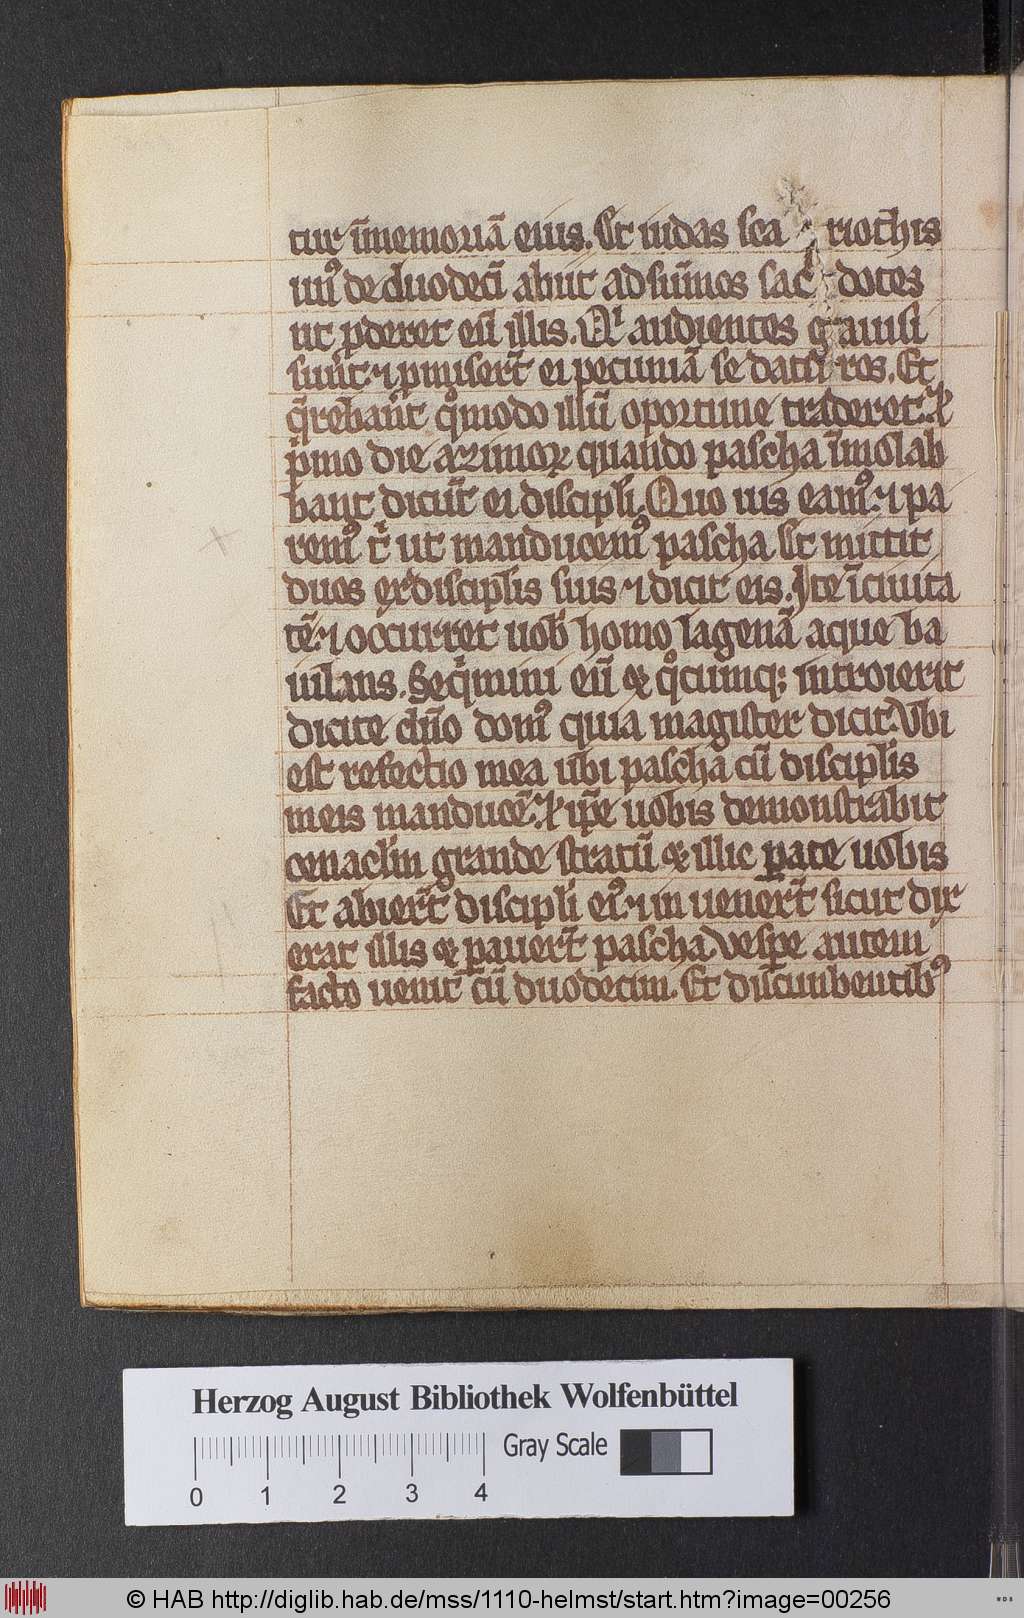 tur ī memoriā eius. Et iudas sca riothis
unꝰ de duodecī abiit ad sūmos sac dotes
ut ꝓderet eū illis. Qͥ audientes gauisi
sunt. ⁊ ꝓmiserūt ei pecuniā se datu ros. Et
q̄rebant qͦmodo illū oportune traderet. Et
pͥmo die azimoꝝ quando pascha īmolab
bant dicūt ei discipli. Quo uis eamꝰ ⁊ pa
remꝰ tͥ ut manducemꝰ pascha Et mittit
duos ex disciplis suis ⁊ dicit eis. Ite ī ciuita
tē. ⁊ occurret uob homo lagenā aque ba
iulans. Seqͥmini eū et qͦcumqꝫ introierit
dicite dn̄o domꝰ quia magister dicit. Vbi
est refectio mea ubi pascha cū disciplis
meis manducē. Et ip̄e uobis demonstrabit
cenaclm grande stratū et illic ꝑate uobis
Et abierūt discipli eiꝰ ⁊ in uenerūt sicut dix
erat illis et ꝑauerūt pascha Vespe autem
facto uenit cū duodecim. Et discumbentibꝰ
Herzog August Bibliothek Wolfenbüttel
Gray Scale
0 1 2 3 4
© HAB http://diglib.hab.de/mss/1110-helmst/start.htm?image=00256